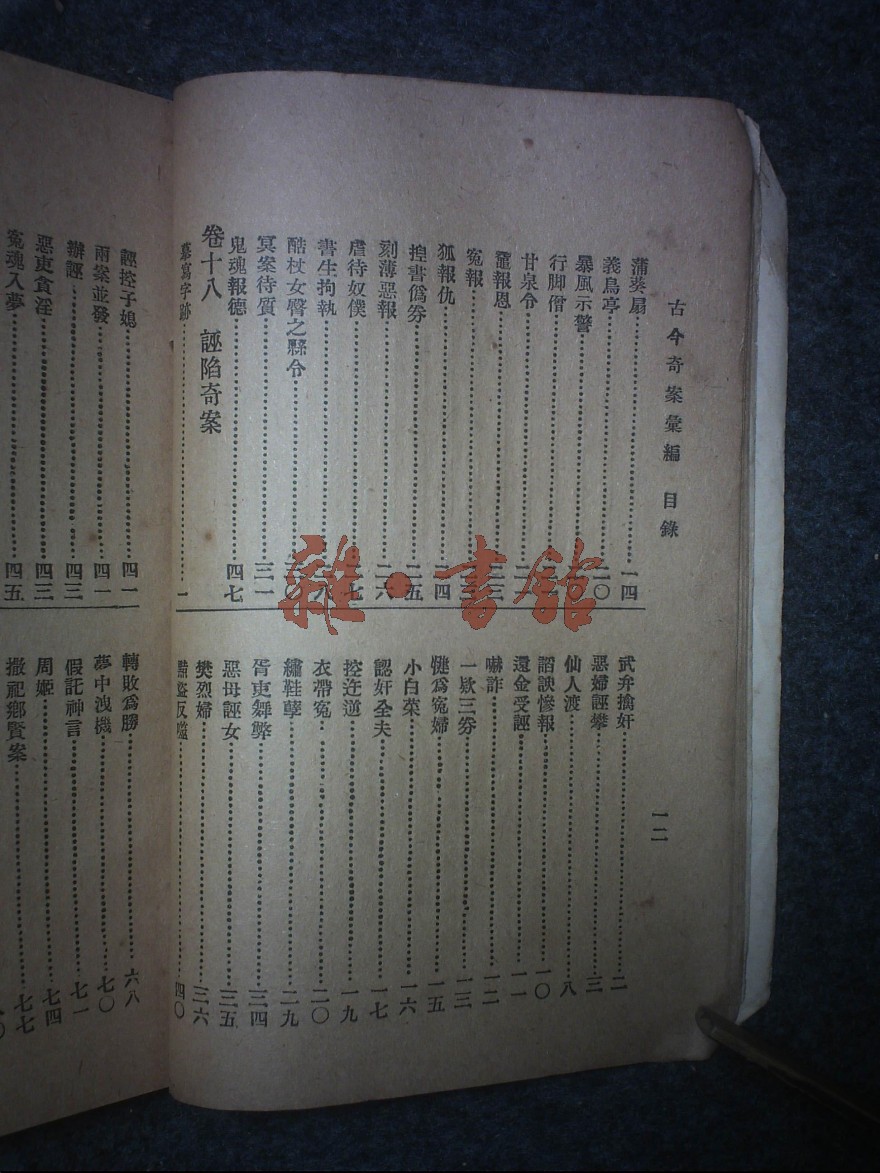 古今奇案彙編 目錄
一二
蒲葵扇……一四
義鳥亭……二〇
暴風示警……
行脚僧……
甘泉令……
鼉報恩……二三
冤報……二三
狐報仇……二四
揑書僞券……二五
刻薄惡報……二六
虐待奴僕……七
書生拘執……八
酷杖女臀之縣令……
冥案待質……三一
鬼魂報德……四七
卷十八 誣陷奇案
摹寫字跡……一
武弁擒奸……二
惡婦誣攀……三
仙人渡……八
諂諛慘報……一〇
還金受誣……一一
嚇詐……一二
一欵三券……一三
犍爲冤婦……一五
小白菜……一六
認奸全夫……一七
控迕逆……一九
衣帶冤……二〇
繡鞋孽……二九
胥吏舞弊……三四
惡母誣女……三五
樊烈婦……三六
黠盜反噬……四〇
誣控子媳……四一
兩案並發……四一
辦誣……四三
惡吏貪淫……四三
冤魂入夢……四五
轉敗爲勝……六八
夢中洩機……七〇
假託神言……七一
周姬……七四
撤祀鄉賢案……七七
雜·書館